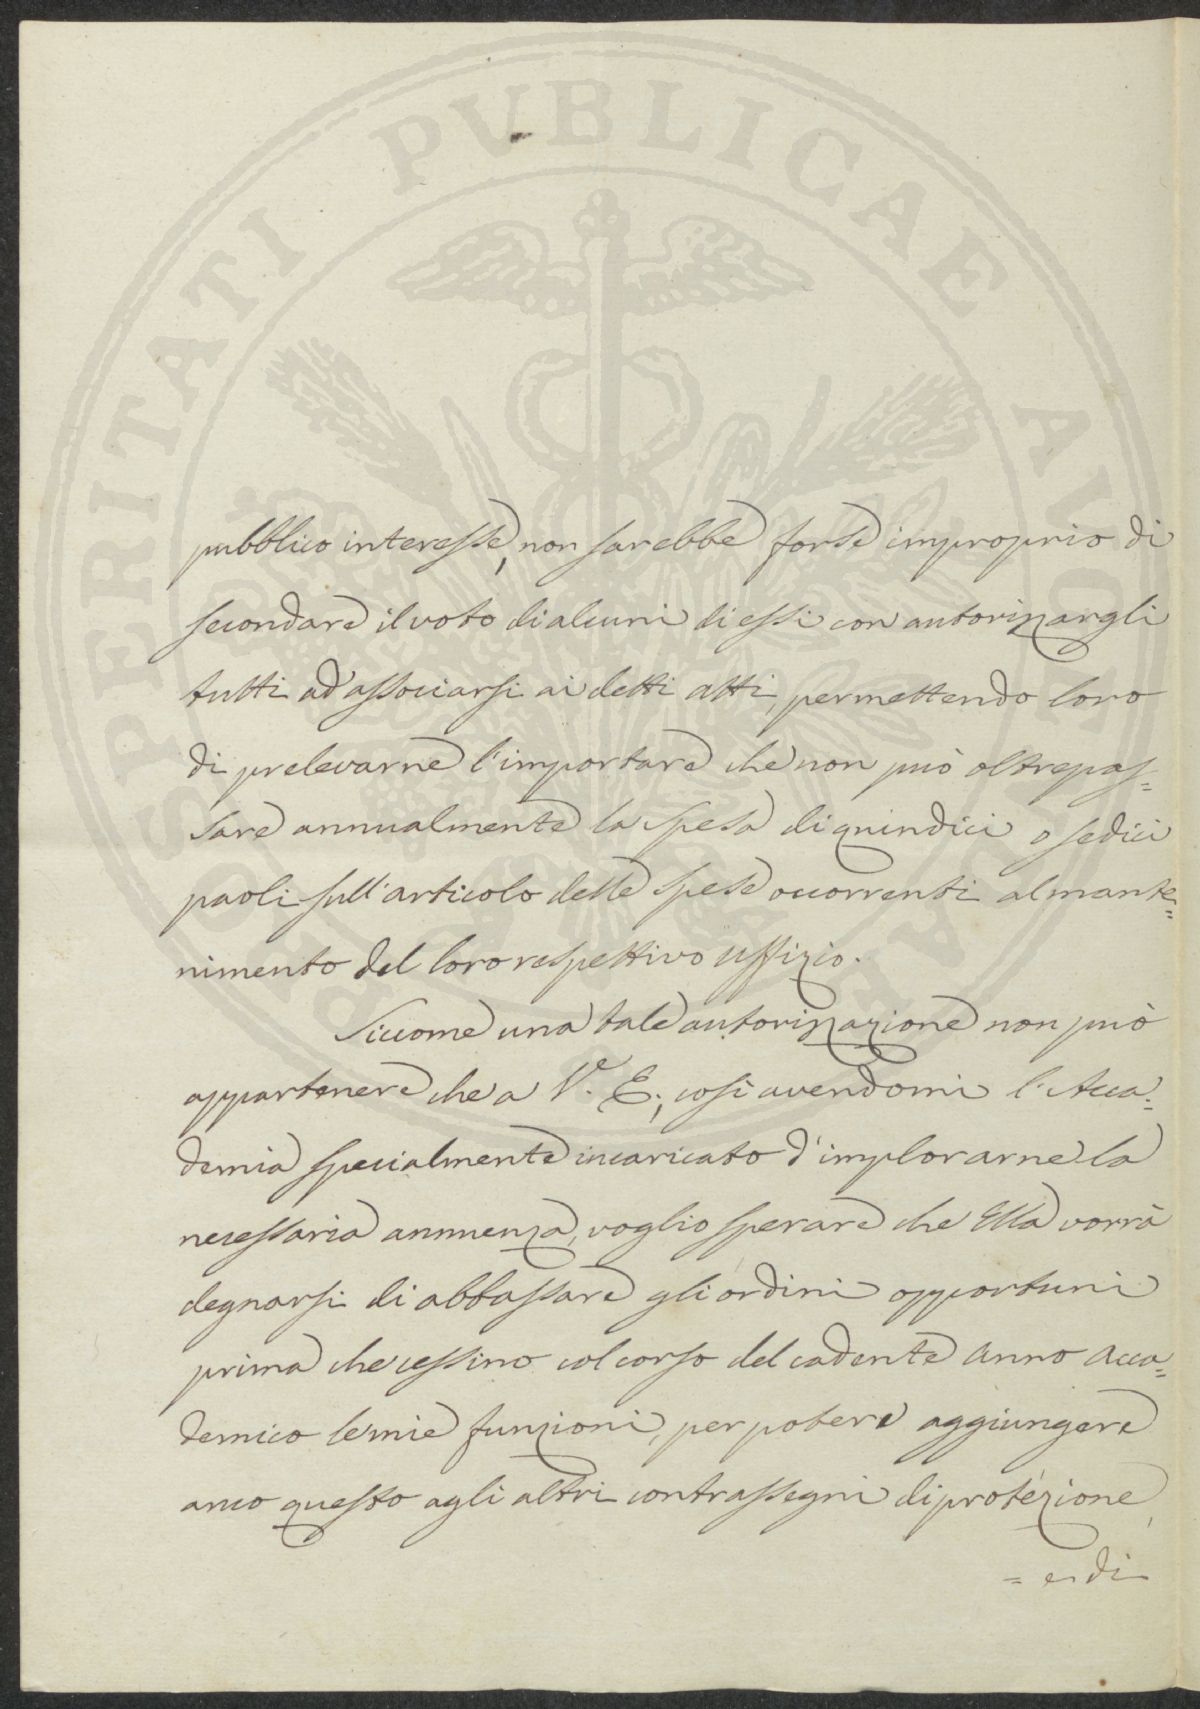 PROSPERITATI PUBLICAE AUGENDAE
pubblico interesse, non sarebbe forse improprio di
secondare il voto di alcuni di essi con autorizzargli
tutti ad associarsi ai detti atti, permettendo loro
di prelevarne l'importare che non può oltrepas=
sare annualmente la spesa di quindici o sedici
paoli sull'articolo delle spese occorrenti al mante=
nimento del loro respettivo Uffizio.
Siccome una tale autorizzazione non può
appartenere che a V.e E.; così avendomi l'Acca=
demia specialmente incaricato d'implorarne la
necessaria annuenza, voglio sperare che Ella vorrà
degnarsi di abbassare gli ordini opportuni
prima che cessino col corso del cadente Anno Acca=
demico le mie funzioni, per potere aggiungere
anco questo agli altri contrassegni di protezione,
= e di